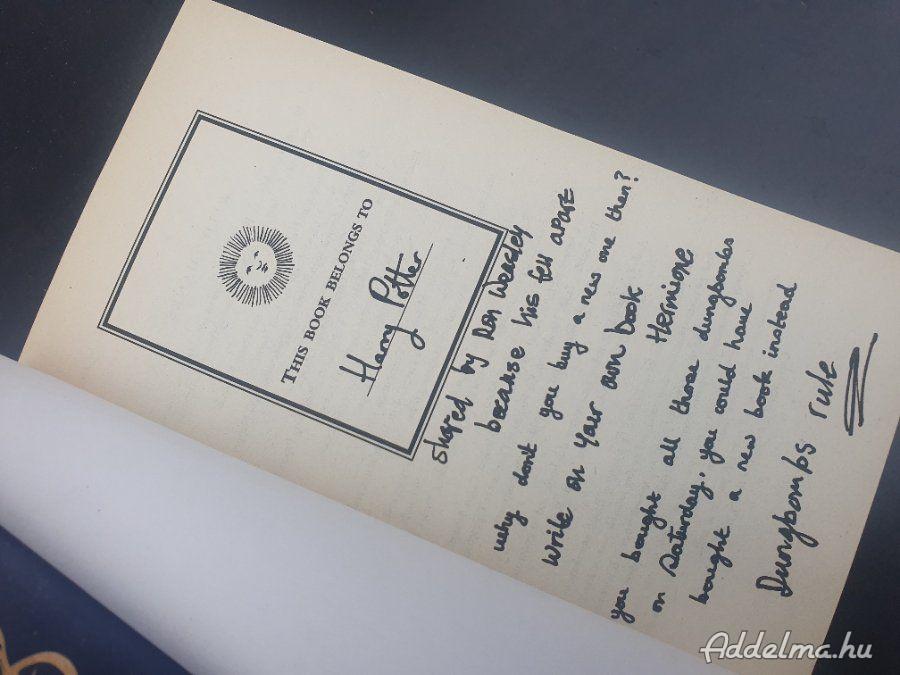 THIS BOOK BELONGS TO
Harry Potter
shared by Ron Weasley
because his fell apart
why dont you buy a new one then?
write on your own book
Hermione
you bought all those dungbombs
on Saturday. you could have
bought a new book instead
Dungbombs rule
Addelma.hu